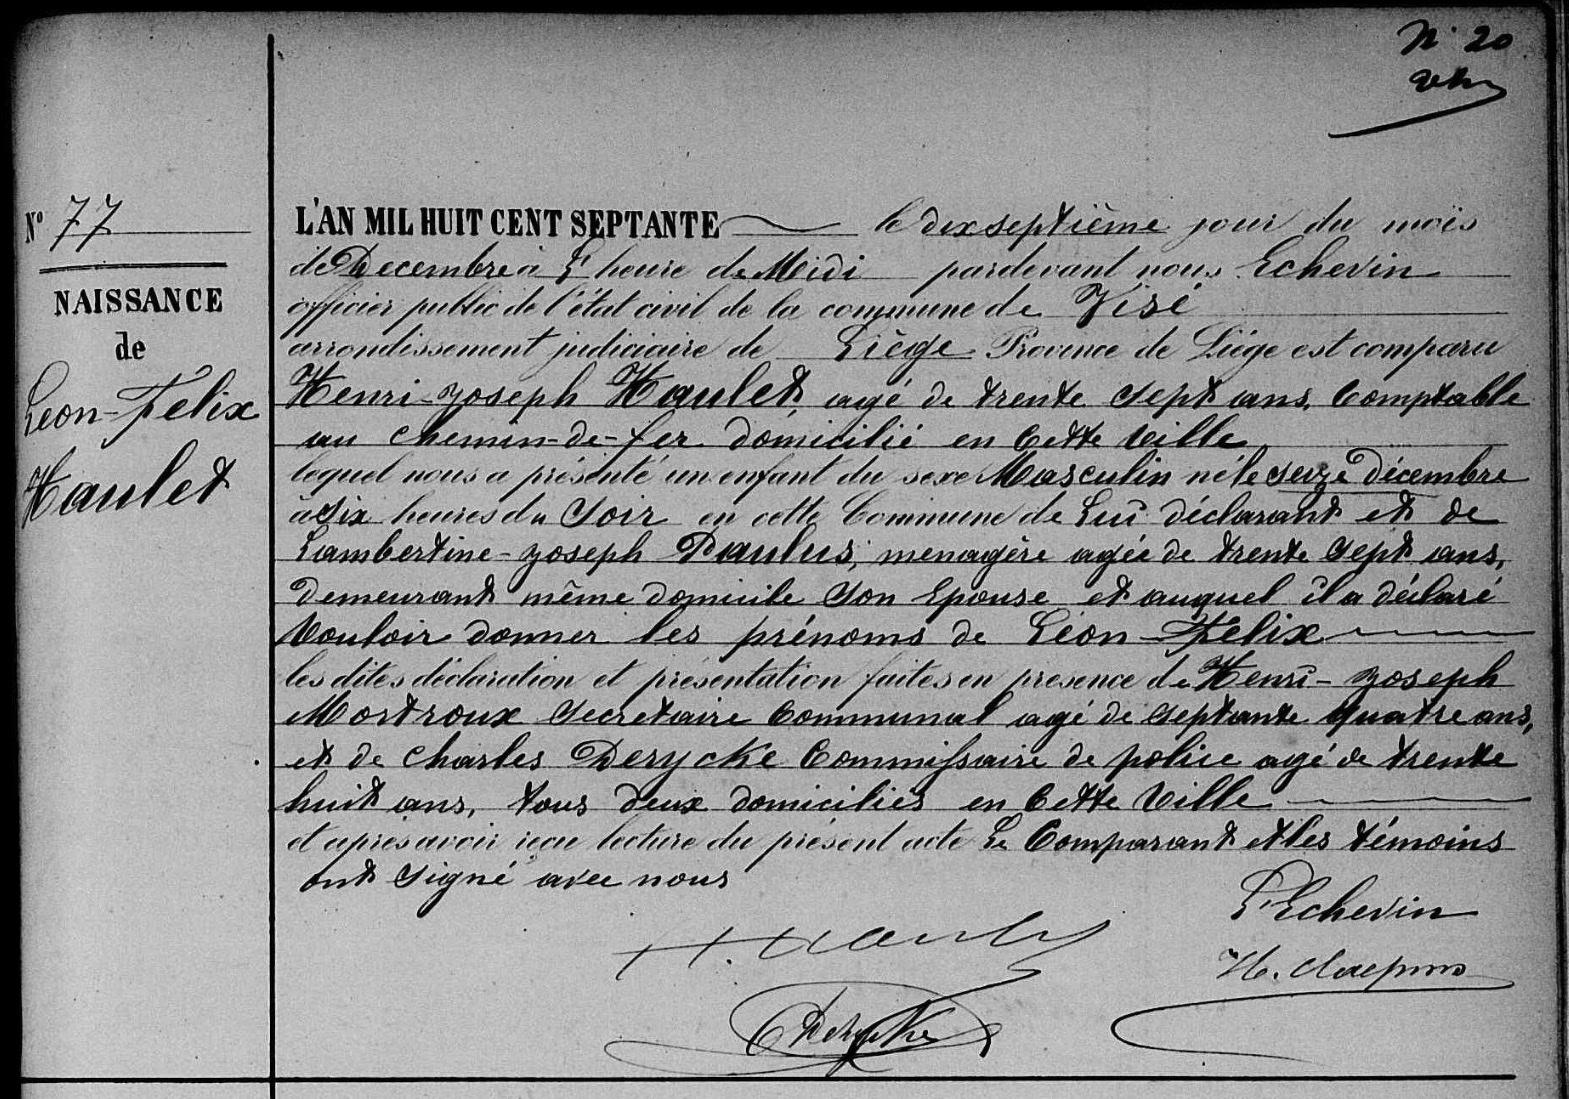 N° 20
N° 77
NAISSANCE
de
Leon-Felix
Haulet
L'AN MIL HUIT CENT SEPTANTE le dixseptième jour du mois
de Decembre à L' heure de Midi pardevant nous Echevin
officier public de l'état civil de la commune de Visé
arrondissement judiciaire de Liège Province de Liége est comparu
Henri-Joseph Haulet, agé de trente sept ans, Comptable
au chemin-de-fer domicilié en Cette Ville
lequel nous a présenté un enfant du sexe Masculin né le seize décembre
à six heures du Soir en cette Commune de Lui déclarant et de
Lambertine-Joseph Paulus, menagère agée de trente sept ans,
demeurant même domicile son Epouse et auquel il a déclaré
Vouloir donner les prénoms de Leon-Felix
les dites déclaration et présentation faites en presence de Henri-Joseph
Mortroux Secretaire Communal agé de septante quatre ans,
et de Charles Derycke Commissaire de police agé de trente
huit ans, tous deux domiciliés en Cette Ville
et après avoir reçu lecture du présent acte Le Comparant et les témoins
ont signé avec nous
L'Echevin
H. Haulet
CDerycke